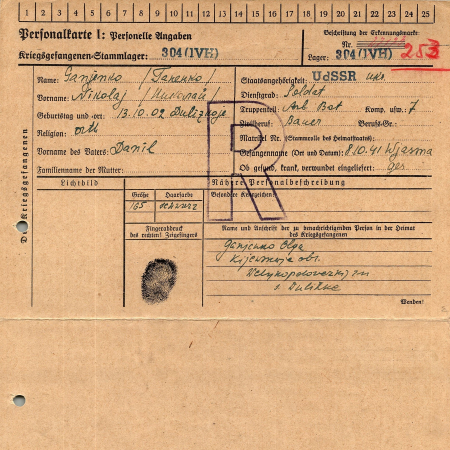 1 2 3 4 5 6 7 8 9 10 11 12 13 14 15 16 17 18 19 20 21 22 23 24 25
Personalkarte I: Personelle Angaben
Kriegsgefangenen-Stammlager: 304 (IVH)
Beschriftung der Erkennungsmarke
Nr. 253
Lager: 304 (IVH)
Des Kriegsgefangenen
Name: Ganjenko
Vorname: Nikolaj / Николай /
Geburtstag und -ort: 13.10.02
Religion: orth
Vorname des Vaters: Danil
Familienname der Mutter:
Staatsangehörigkeit: UdSSR ukr.
Dienstgrad: Soldat
Truppenteil: Arb Bat Komp. usw.: 7
Zivilberuf: Bauer Berufs-Gr.:
Matrikel Nr. (Stammrolle des Heimatstaates):
Gefangennahme (Ort und Datum): 8.10.41 Wjasma
Ob gesund, krank, verwundet eingeliefert: ges
R
Lichtbild
Nähere Personalbeschreibung
Größe Haarfarbe Besondere Kennzeichen:
165 schwarz
Fingerabdruck
des rechten! Zeigefingers
Name und Anschrift der zu benachrichtigenden Person in der Heimat
des Kriegsgefangenen
Ganjenko Olga
Kijewskaja obl.
Wenden!